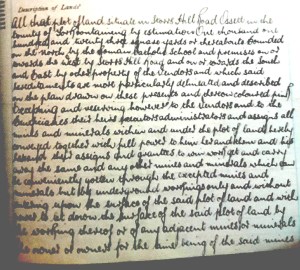 Description of Lands
All that plot of land situate in Scotts Hill Road Essett in the
County of York containing by estimation One thousand one
hundred and twenty three square yards or thereabouts bounded
on the north by the Roman Catholic School and premises on or
towards the west by Scotts Hill Road and on or towards the South
and East by other property of the Vendors and which said
hereditaments are more particularly delineated and described
on the plan drawn on these presents and thereon coloured pink
Excepting and reserving however to the Vendors and to the
heirs executors administrators and assigns all
mines and minerals within and under the plot of land hereby
conveyed together with full power to him
his assigns and grantees to win work get and carry
away the same and any other mines and minerals which can
be conveniently gotten through the excepted mines and
minerals but by underground workings only and without
entering upon the surface of the said plot of land and with
power to let down the surface of the said plot of land by
the working thereof or of any adjacent mines or minerals
owner or owners for the time being of the said mines